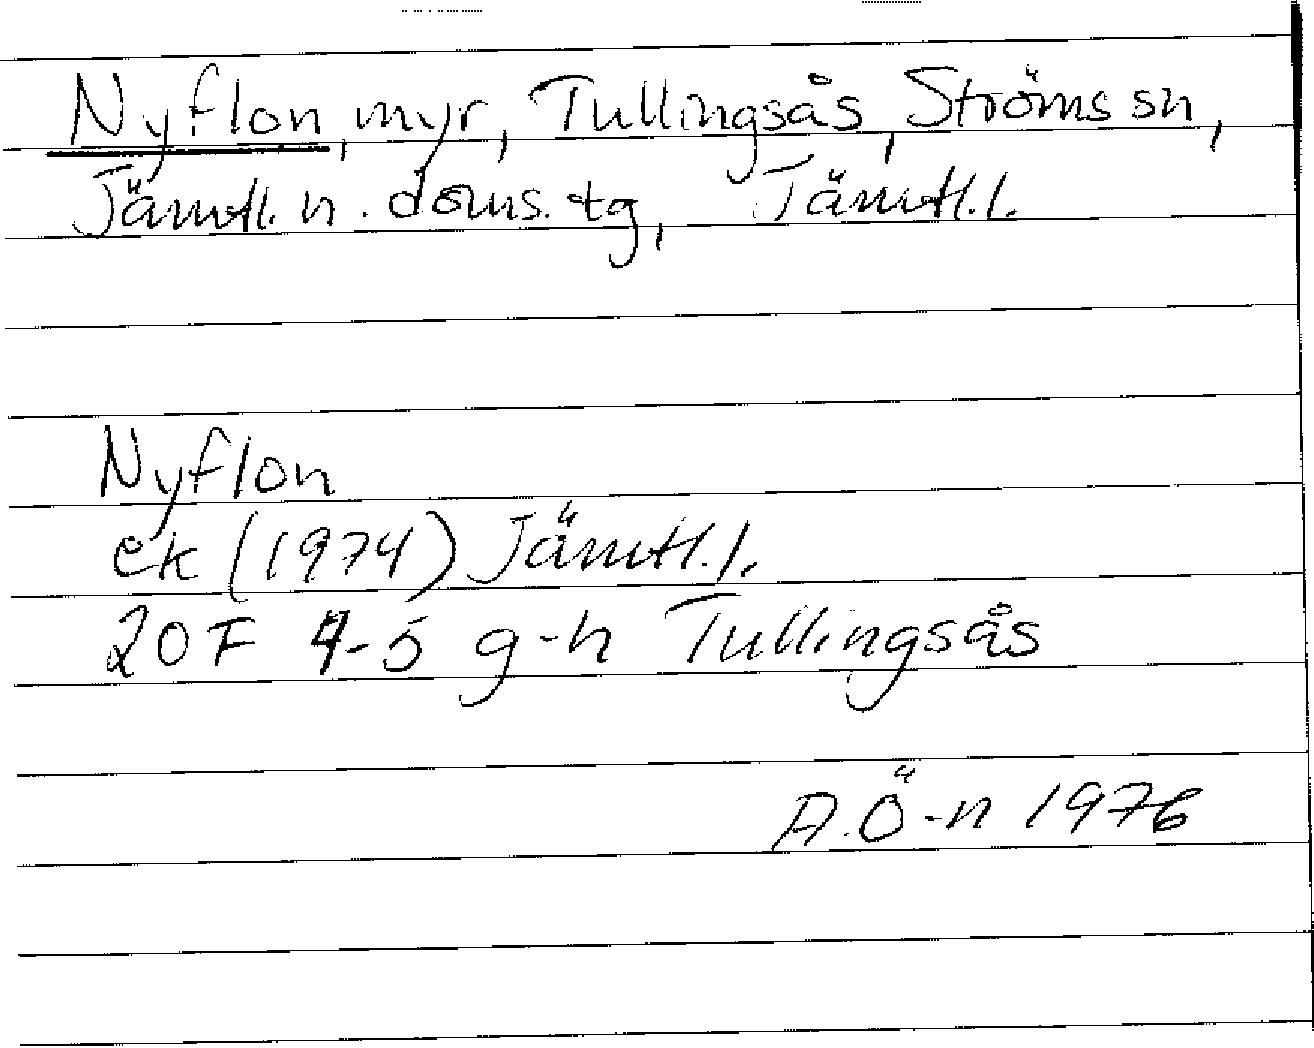 Nyflon, myr, Tullingsås, Ströms sn,
Jämtl. n. doms. tg, Jämtl. l.
Nyflon
ek (1974) Jämtl. l.
20F 4-5 g-h Tullingsås
A. Ö-n 1976